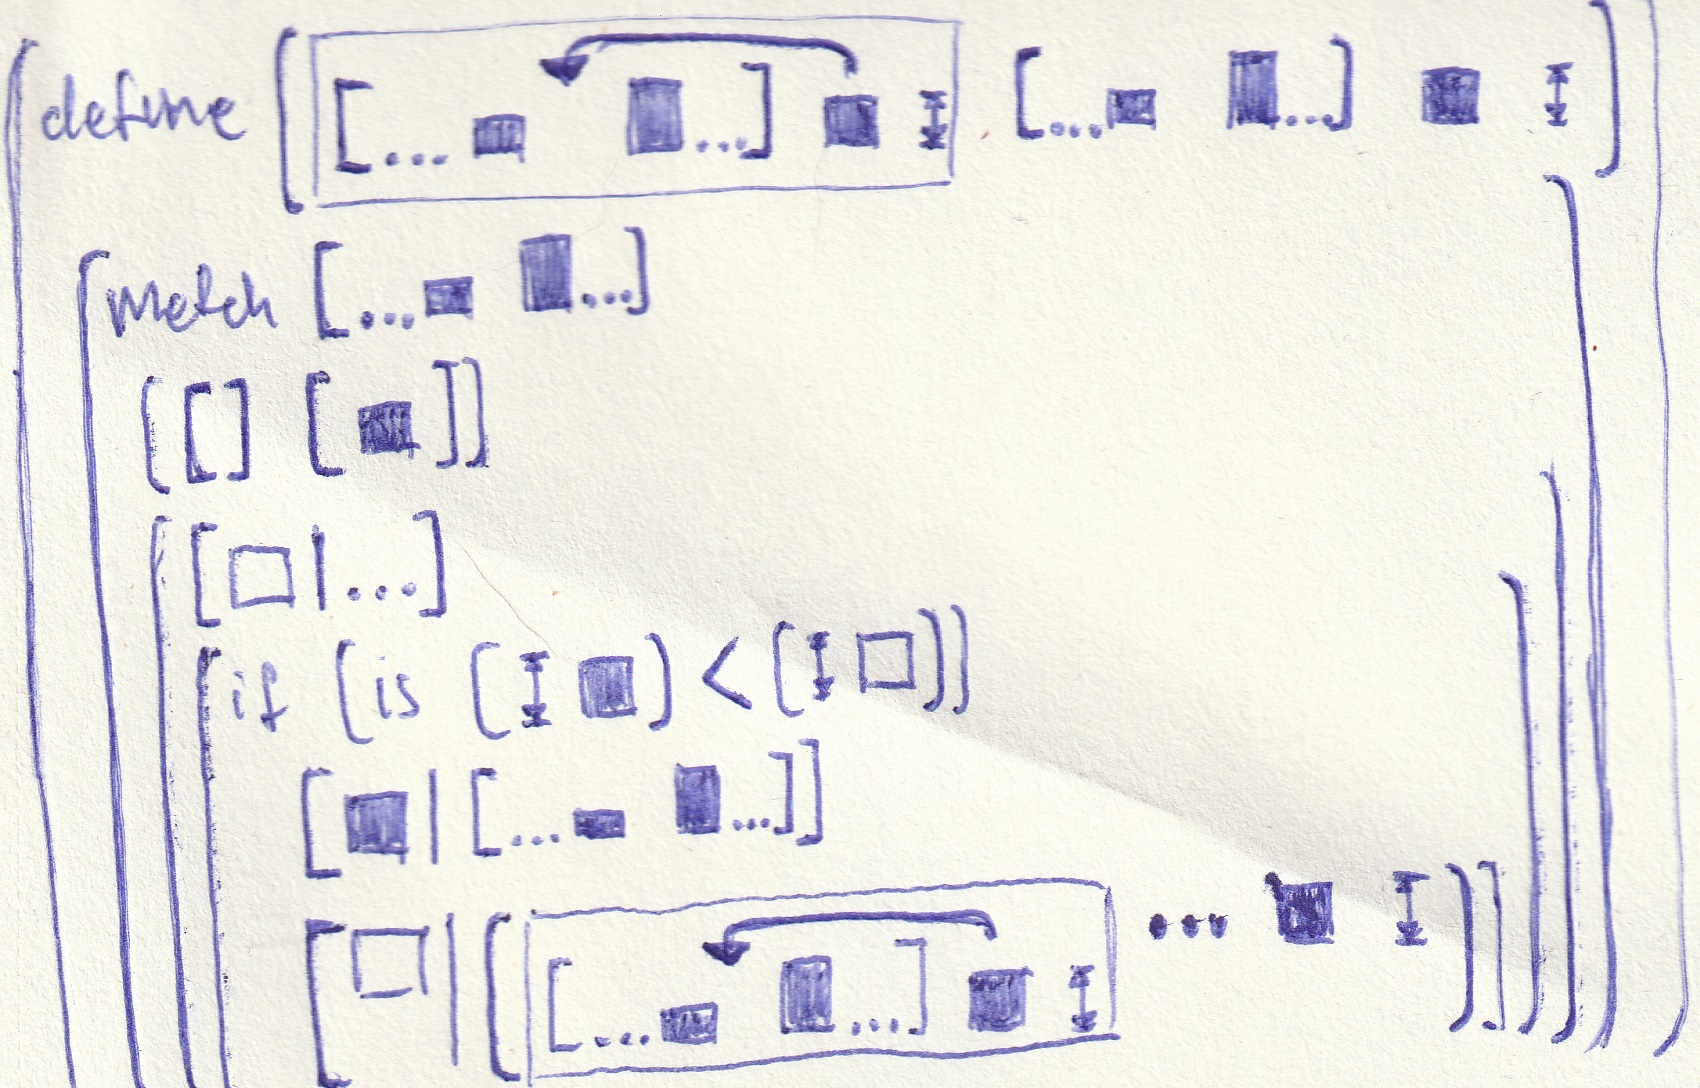 (define ([... ■ ■ ...] ■ ↕ [... ■ ■ ...] ■ ↕)
(match [... ■ ■ ...]
([] [■])
([□|...]
(if (is (↕ ■) < (↕ □))
[■|[... ■ ■ ...]]
[□|([... ■ ■ ...] ■ ↕ ... ■ ↕)]))))